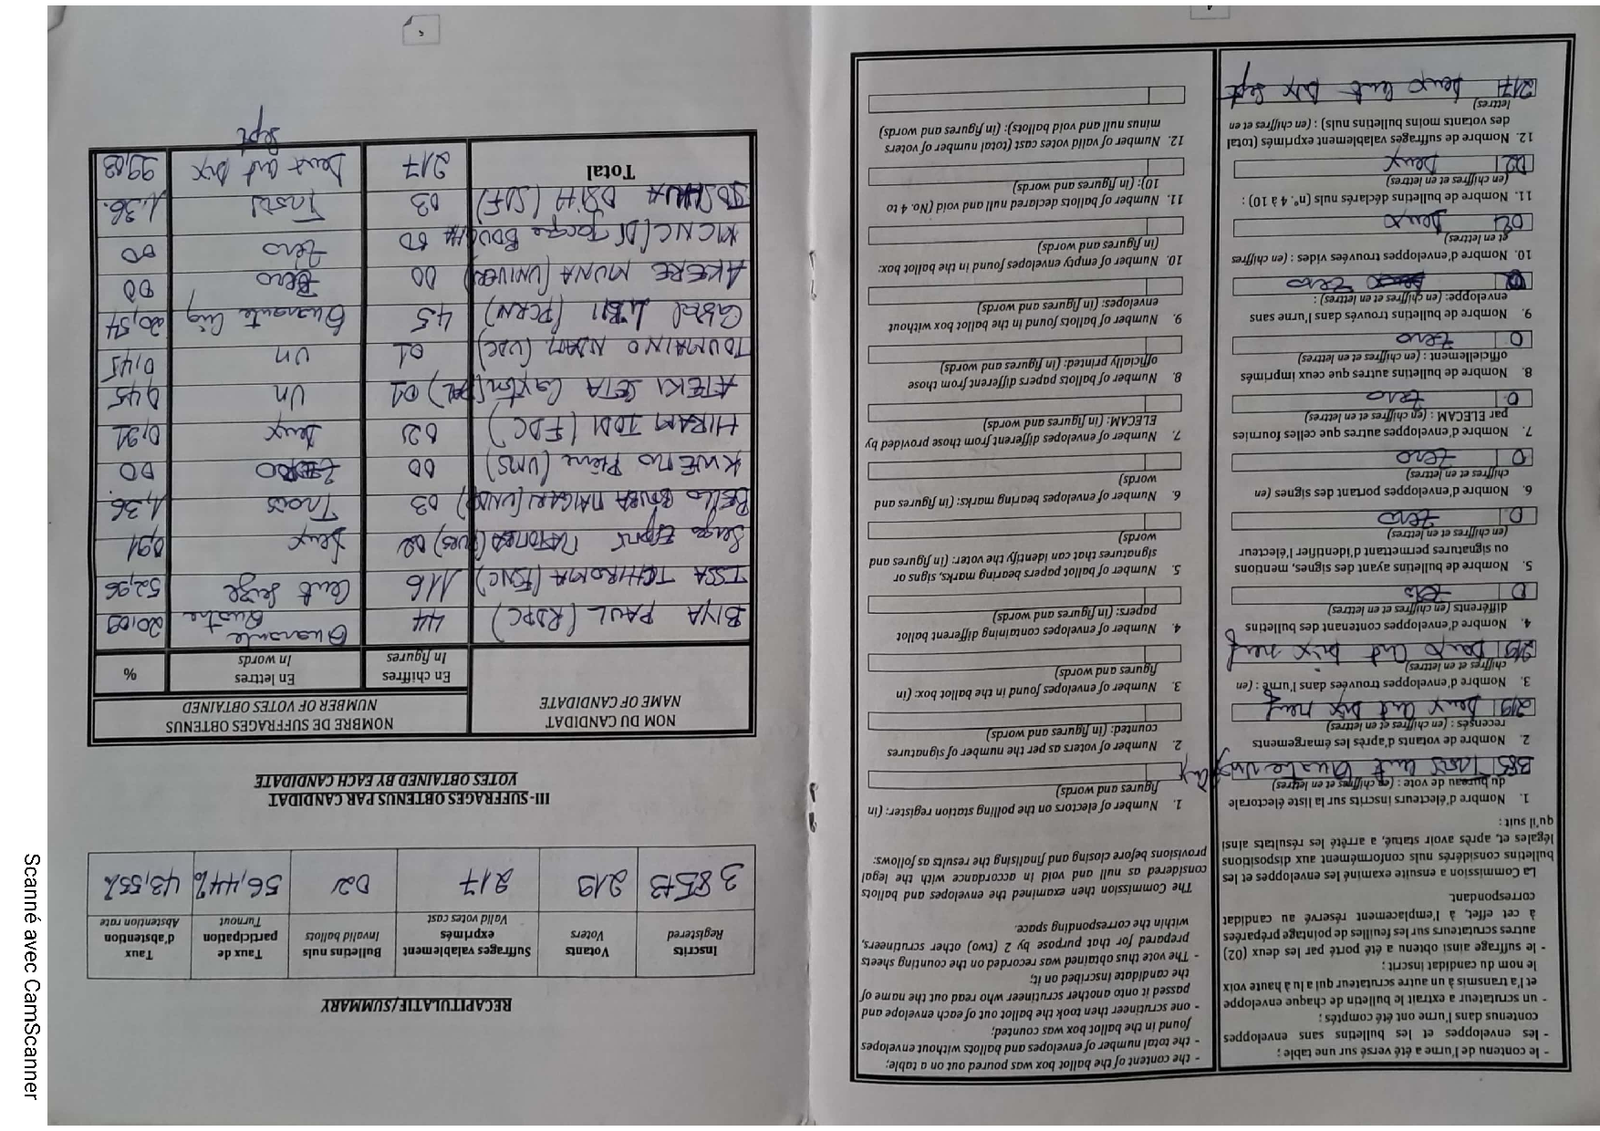 4
- le contenu de l'urne a été versé sur une table ;
- les enveloppes et les bulletins sans enveloppes
contenus dans l'urne ont été comptés ;
- un scrutateur a extrait le bulletin de chaque enveloppe
et l'a transmis à un autre scrutateur qui a lu à haute voix
le nom du candidat inscrit ;
- le suffrage ainsi obtenu a été porté par les deux (02)
autres scrutateurs sur les feuilles de pointage préparées
à cet effet, à l'emplacement réservé au candidat
correspondant.
La Commission a ensuite examiné les enveloppes et les
bulletins considérés nuls conformément aux dispositions
légales et, après avoir statué, a arrêté les résultats ainsi
qu'il suit :
1. Nombre d'électeurs inscrits sur la liste électorale
du bureau de vote : (en chiffres et en lettres)
385 Trois cent Quatre
2. Nombre de votants d'après les émargements
recensés : (en chiffres et en lettres)
219 Deux cent Dix neuf
3. Nombre d'enveloppes trouvées dans l'urne : (en
chiffres et en lettres)
219 Deux cent Dix neuf
4. Nombre d'enveloppes contenant des bulletins
différents (en chiffres et en lettres)
0
5. Nombre de bulletins ayant des signes, mentions
ou signatures permettant d'identifier l'électeur
(en chiffres et en lettres)
0 Zero
6. Nombre d'enveloppes portant des signes (en
chiffres et en lettres)
0 Zero
7. Nombre d'enveloppes autres que celles fournies
par ELECAM : (en chiffres et en lettres)
0 Zero
8. Nombre de bulletins autres que ceux imprimés
officiellement : (en chiffres et en lettres)
0 Zero
9. Nombre de bulletins trouvés dans l'urne sans
enveloppe: (en chiffres et en lettres) :
Zero
10. Nombre d'enveloppes trouvées vides : (en chiffres
et en lettres)
02 Deux
11. Nombre de bulletins déclarés nuls (n°. 4 à 10) :
(en chiffres et en lettres)
02 Deux
12. Nombre de suffrages valablement exprimés (total
des votants moins bulletins nuls) : (en chiffres et en
lettres)
217 Deux cent Dix sept
- the content of the ballot box was poured out on a table;
- the total number of envelopes and ballots without envelopes
found in the ballot box was counted;
- one scrutineer then took the ballot out of each envelope and
passed it onto another scrutineer who read out the name of
the candidate inscribed on it;
- The vote thus obtained was recorded on the counting sheets
prepared for that purpose by 2 (two) other scrutineers,
within the corresponding space.
The Commission then examined the envelopes and ballots
considered as null and void in accordance with the legal
provisions before closing and finalising the results as follows:
1. Number of electors on the polling station register: (in
figures and words)
2. Number of voters as per the number of signatures
counted: (in figures and words)
3. Number of envelopes found in the ballot box: (in
figures and words)
4. Number of envelopes containing different ballot
papers: (in figures and words)
5. Number of ballot papers bearing marks, signs or
signatures that can identify the voter: (in figures and
words)
6. Number of envelopes bearing marks: (in figures and
words)
7. Number of envelopes different from those provided by
ELECAM: (in figures and words)
8. Number of ballots papers different from those
officially printed: (in figures and words)
9. Number of ballots found in the ballot box without
envelopes: (in figures and words)
10. Number of empty envelopes found in the ballot box:
(in figures and words)
11. Number of ballots declared null and void (No. 4 to
10): (in figures and words)
12. Number of valid votes cast (total number of voters
minus null and void ballots): (in figures and words)
RECAPITULATIF/SUMMARY
Inscrits Registered | Votants Voters | Suffrages valablement exprimés Valid votes cast | Bulletins nuls Invalid ballots | Taux de participation Turnout | Taux d'abstention Abstention rate
219 | 217 | 02 | 56,44% | 43,55%
III- SUFFRAGES OBTENUS PAR CANDIDAT
VOTES OBTAINED BY EACH CANDIDATE
NOM DU CANDIDAT NAME OF CANDIDATE | NOMBRE DE SUFFRAGES OBTENUS NUMBER OF VOTES OBTAINED
En chiffres In figures | En lettres In words | %
BIYA PAUL (RDPC) 44 Quarante Quatre 20,09
ISSA TCHIROMA (FSNC) 116 Cent Seize 52,96
Serge Espoir MATOMBA 02 Deux 0,91
BELLO BOUBA MAIGARI 03 Trois 1,36.
KWEMO Pierre (UMS) 00 ZERO 00
HIRAM IYODI (FDC) 02 Deux 0,91
ATEKI SETA Caxton (PAL) 01 Un 0,45
TOUMAINO NDAM (UDC) 01 Un 0,45
CABRAL LIBII (PCRN) 45 Quarante Cinq 20,54
AKERE MUNA (UNIVERS) 00 Zero 00
Jacques BOUGHA 00 Zero 00
JOSHUA OSIH (SDF) 03 Trois 1,36.
Total 217 Deux cent Dix sept 99,08
5
Scanné avec CamScanner